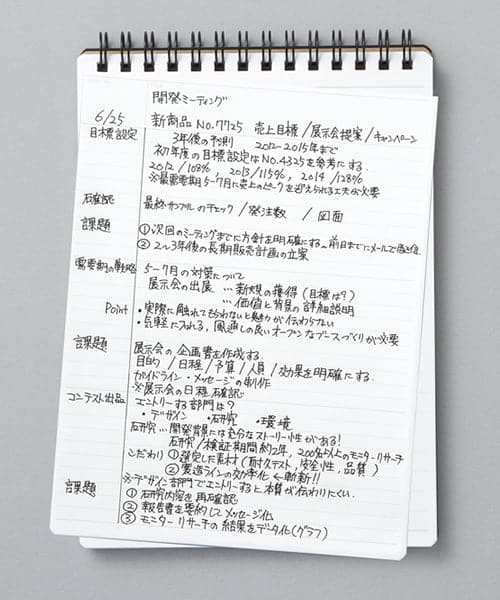 開発ミーティング
6/25 新商品 No.7725 売上目標/展示会提案/キャンペーン
目標設定 3年後の予測 2012-2015年まで
初年度の目標設定はNo.4325を参考にする.
2012/108%, 2013/115%, 2014/128%
※最需要期5-7月に売上のピークを迎えられる工夫が必要
確認 最終サンプルのチェック/発注数 / 図面
課題 ①次回のミーティングまでに方針を明確にする→前日までにメールで
②2ル3年後の長期販売計画の立案
需要期の戦略 5-7月の対策について
展示会の出展 … 新規の獲得(目標は?)
… 価値と背景の詳細説明
Point ・実際に触れてもらわないと魅力が伝わらない
・気軽に入れる,風通しの良いオープンなブースづくりが必要
課題 展示会の企画書を作成する.
目的/日程/予算/人員/効果を明確にする.
ガイドライン・メッセージの制作
※展示会の日程確認
コンテスト出品 エントリーする部門は?
・デザイン ・研究 ・環境
研究…開発背景には充分なストーリー性がある!
研究/検証期間約2年,200名以上のモニターリサーチ
こだわり ①選定した素材(耐久テスト,安全性,品質)
②製造ラインの効率化←斬新!!
※デザイン部門でエントリーすると本質が伝わりにくい.
課題 ①研究内容を再確認
②報告書を要約してメッセージ化
③モニターリサーチの結果をデータ化(グラフ)